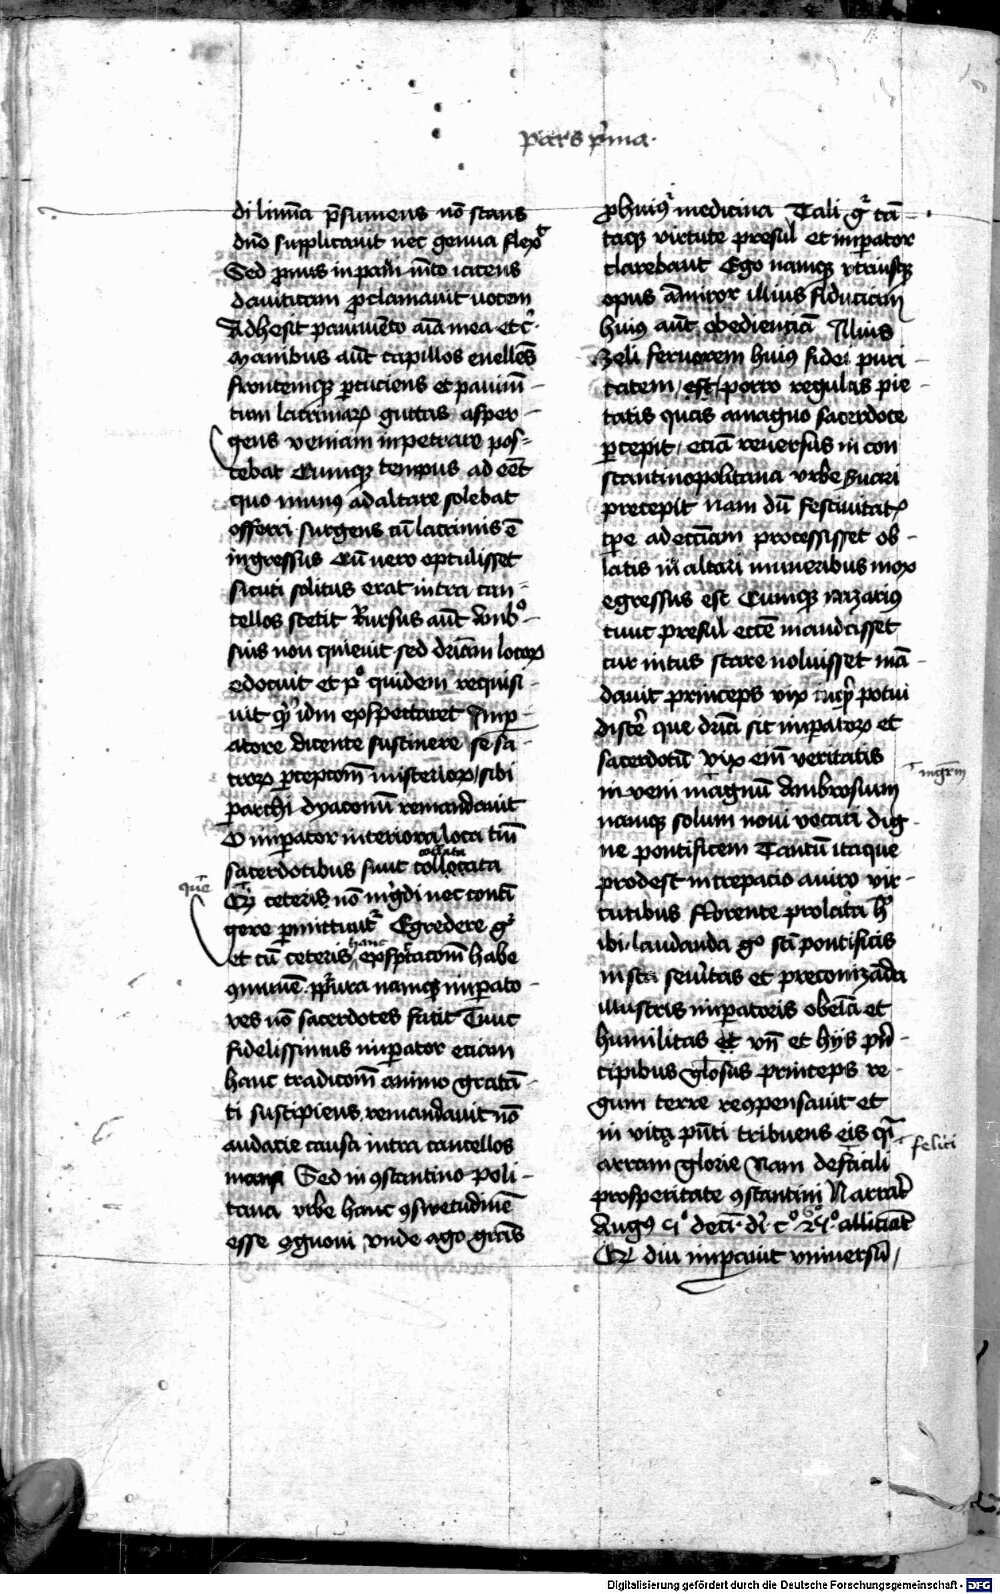 pars p̄ma·
di limīa p̄sumens nō stans
dnō supplicauit nec genua flexᵗ
Sed pronus in pauimto iacens
dauiticam proclamauit uocem
Adhesit pauimēto aīa mea etc̄·
Manibus aūt capillos euellēs
frontemqȝ ꝑcuciens et pauim̄-
tum lacrimaꝝ guttas asper-
gens veniam inpetrare pos-
cebat Cumqȝ tempus adeēt
quo munꝰ ad altare solebat
offerri surgens cū lacrimis ē
ingressus Cū vero optulisset
sicuti solitus erat intra can-
tellos stetit Rursus aūt Ambꝛo
sius non quieuit sed dr̄iam locoꝝ
edocuit et pº quidem requisi-
uit qͥ idm expectaret Imp-
atore dicente sustinere se sa-
croꝝ ꝑcepcom̄ misterioꝝ sibi
ꝑ archi dyaconū remandauit
O impator interiora loca tm̄
collata
sacerdotibus sunt collocata
que
ceteris nō ingͤdi nec conti
gere ꝑmittuntͬ Egredere gͦ
hanc
et cū ceteris expectacom̄ habe
ꝯmunē purpura namqȝ impato-
res nō sacerdotes facit Tunc
fidelissimus impator eciam
hanc tradicom̄ animo gratan-
ti suscipiens remandauit nō
audacie causa intra cancellos
mansi Sed in ꝯstantino poli-
tana vrbe hanc ꝯswetudinē
esse ꝯgnoui vnde ago gracīs
pro huiꝰ medicina Tali gͦ tā-
taqȝ virtute presul et imperator
clarebant Ego namqȝ vtriusqȝ
opus āmiror illius fiduciam
huiꝰ aūt obedienciā Illius
zeli feruorem huiꝰ fidei puri-
tatem est porro regulas pie-
tatis quas a magno sacerdote
ꝑcepit eciā reuersus in con
stantinopolitana vrbe s̄uari
precepit nam dū festiuitatꝭ
tp̄e ad ecc̄iam processisset ob-
latis in altari muneribus mox
egressus est Cumqȝ narzariꝰ
tunc presul ecc̄e mandasset
cur intus stare noluisset man-
dauit princeps vix potui
discͤe que dr̄ia sit impatoꝝ et
sacerdotū vix em̄ veritatis
mḡrm
inveni magnū Ambrosium
namqȝ solum noui vocari dig-
ne pontificem Tantū itaque
prodest increpacio a viro vir-
tutibus florente prolata hͦ
ibi laudanda gͦ stī pontificis
iusta seuͥtas et preconizāda
illustris impatoris obeīa et
humilitas et vn̄ et hijs pn̄-
cipibus gl̄osus princeps re-
gum terre reꝯpensauit et
in vita pn̄ti tribuens eis qī
felici
arram glorie Nam de facili
prosperitate ꝯstantini Narrat
Augꝰ diu impauit vniuersū